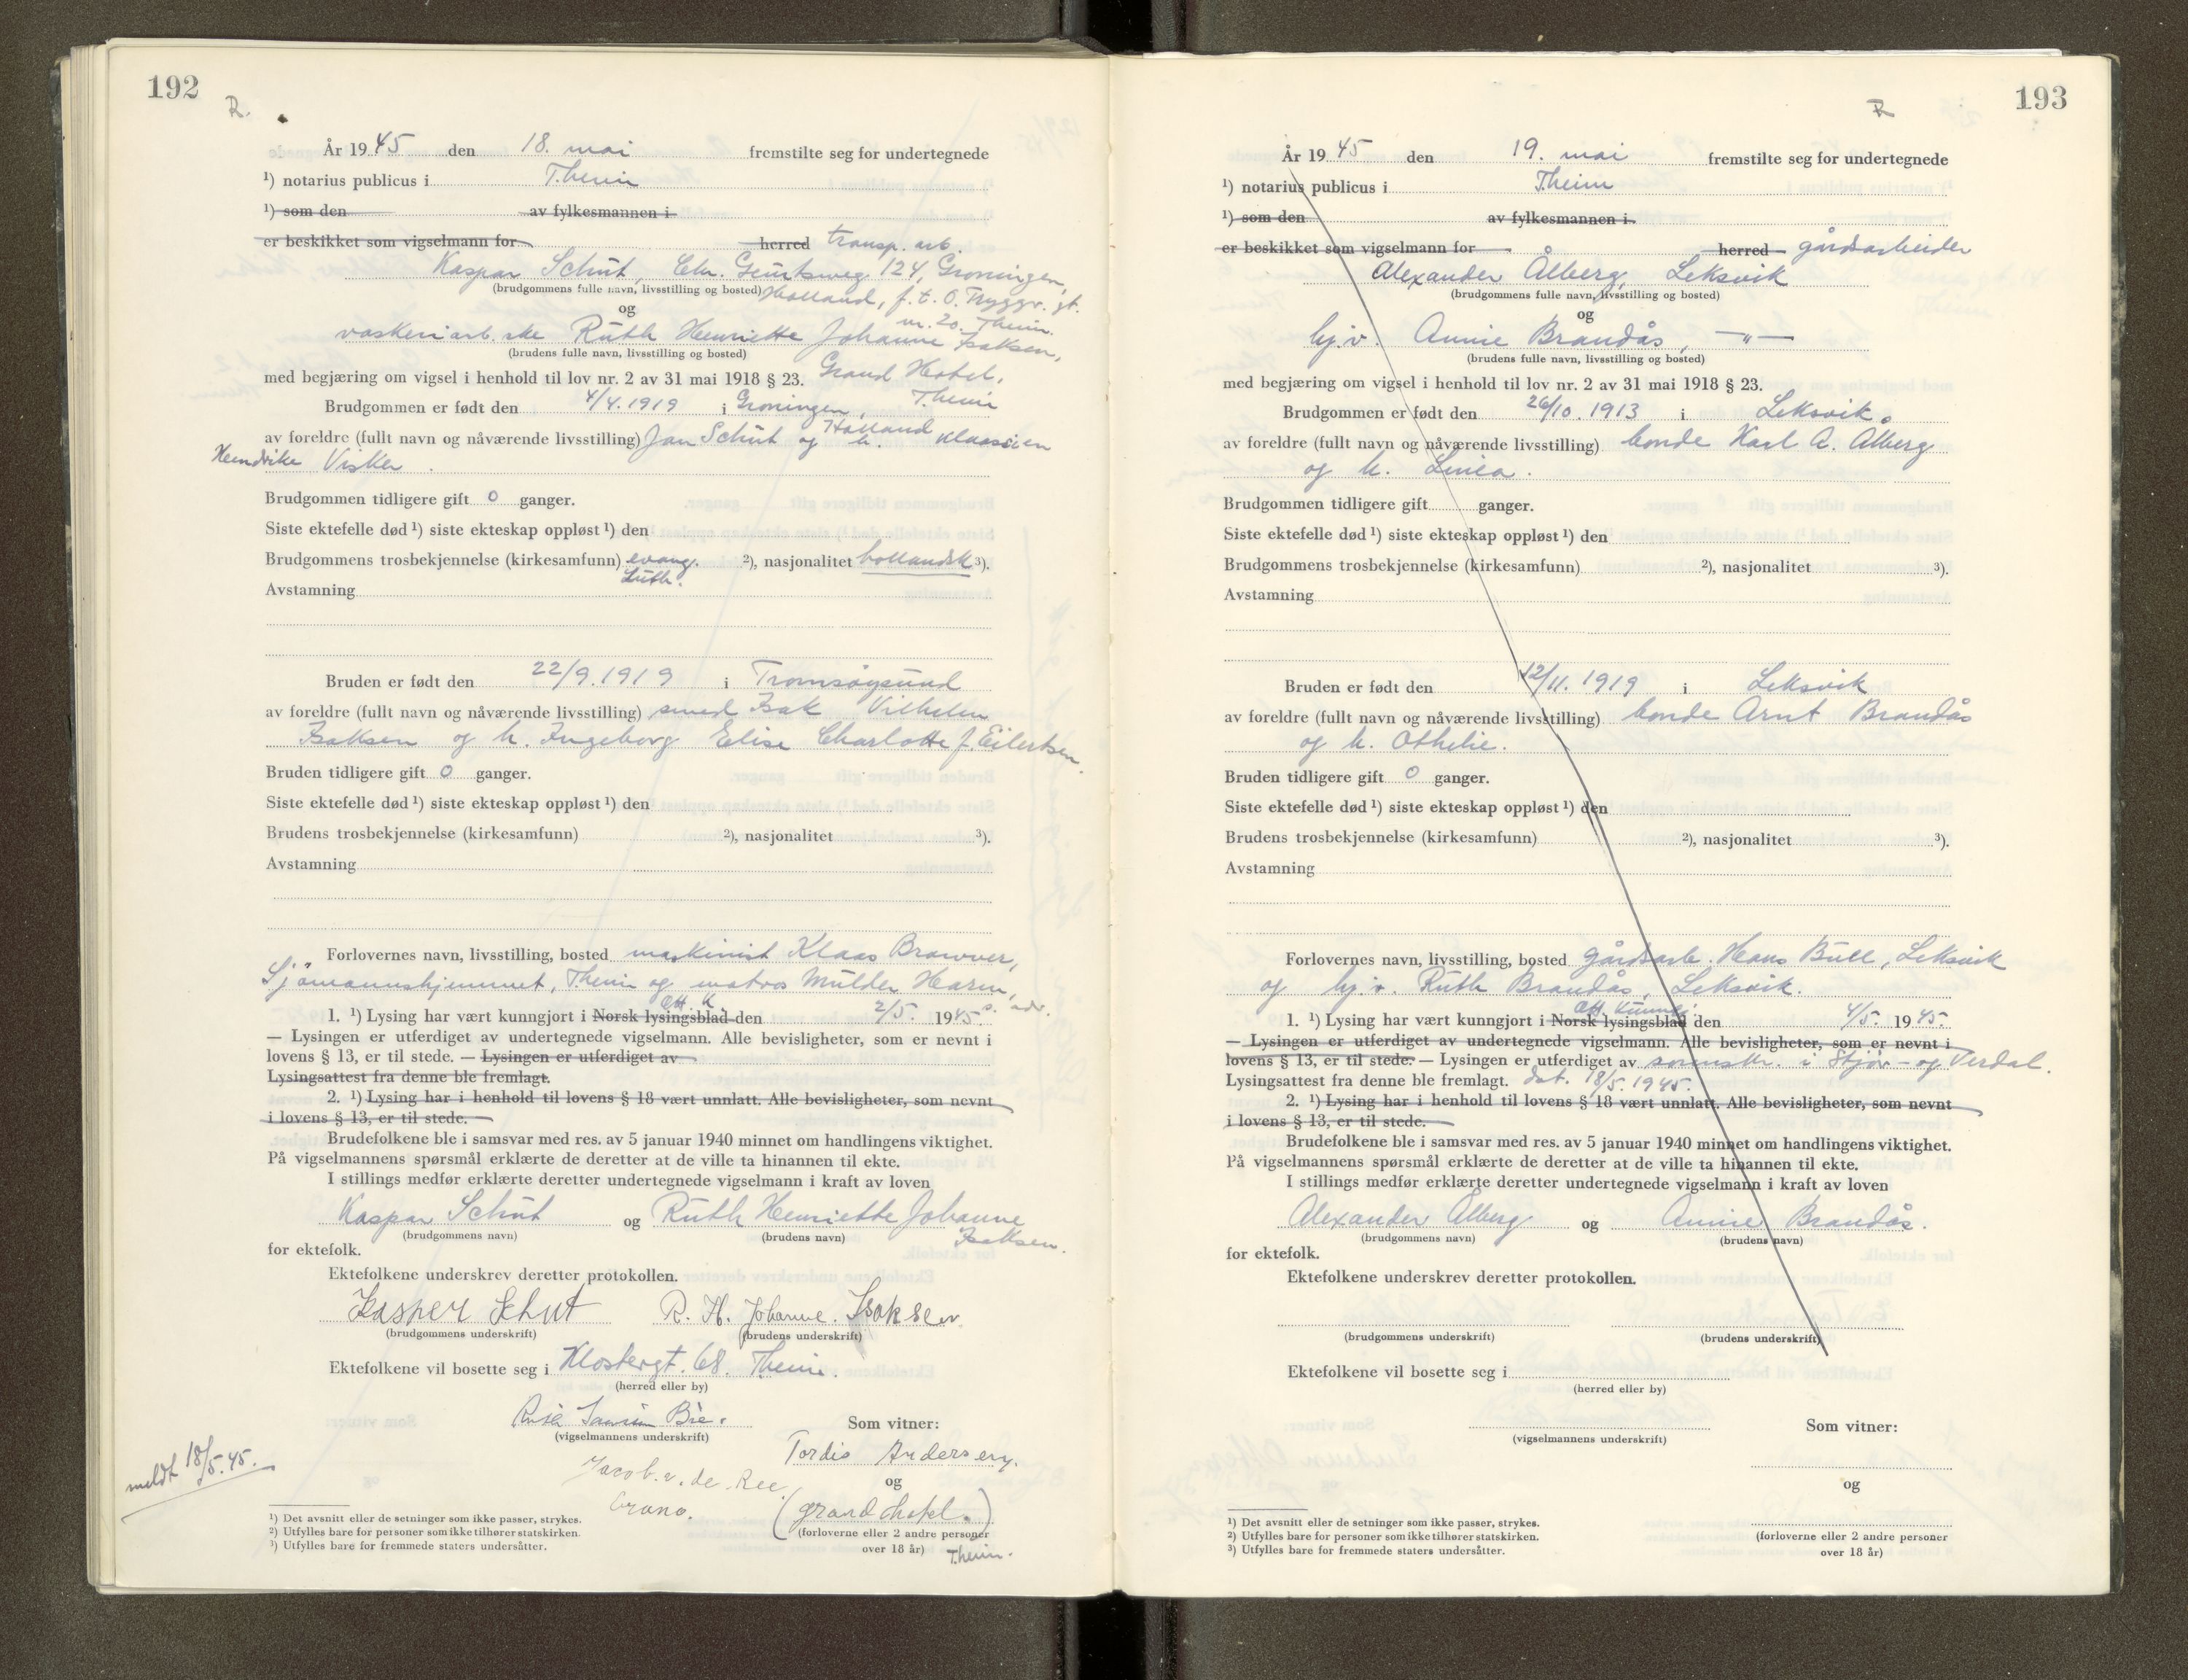 192
R.
År 1945 den 18. mai fremstilte seg for undertegnede
¹) notarius publicus i Theim
¹) som den av fylkesmannen i
er beskikket som vigselmann for herred transp. arb.
Kaspar Schut, Chr. 124, Groningen,
(brudgommens fulle navn, livsstilling og bosted) Holland, f. t. O. Tryggv. gt.
og nr. 20. Theim.
vaskeriarb.ske Ruth Henriette Johanne Isaksen,
(brudens fulle navn, livsstilling og bosted)
med begjæring om vigsel i henhold til lov nr. 2 av 31 mai 1918 § 23. Grand Hotel,
Theim
Brudgommen er født den 4/4. 1919 i Groningen,
Holland
av foreldre (fullt navn og nåværende livsstilling) Jan Schut og h. Klaassien
Hendrike Visker.
Brudgommen tidligere gift 0 ganger.
Siste ektefelle død ¹) siste ekteskap oppløst ¹) den
Brudgommens trosbekjennelse (kirkesamfunn) evang. ²), nasjonalitet hollandsk ³).
Luth.
Avstamning
Bruden er født den 22/9. 1919 i Tromsøysund
av foreldre (fullt navn og nåværende livsstilling) smed Isak Vilhelm
Isaksen og h. Ingeborg Elise Charlotte f. Eilertsen.
Bruden tidligere gift 0 ganger.
Siste ektefelle død ¹) siste ekteskap oppløst ¹) den
Brudens trosbekjennelse (kirkesamfunn) ²), nasjonalitet ³).
Avstamning
Forlovernes navn, livsstilling, bosted maskinist Klaas Brouwer,
Sjömannshjemmet, Theim og matros Mulder Harm,
s. adr.
Off. K.
1. ¹) Lysing har vært kunngjort i Norsk lysingsblad den 2/5. 1945.
— Lysingen er utferdiget av undertegnede vigselmann. Alle bevisligheter, som er nevnt i
lovens § 13, er til stede. — Lysingen er utferdiget av
Lysingsattest fra denne ble fremlagt.
2. ¹) Lysing har i henhold til lovens § 18 vært unnlatt. Alle bevisligheter, som nevnt
i lovens § 13, er til stede.
Brudefolkene ble i samsvar med res. av 5 januar 1940 minnet om handlingens viktighet.
På vigselmannens spørsmål erklærte de deretter at de ville ta hinannen til ekte.
I stillings medfør erklærte deretter undertegnede vigselmann i kraft av loven
Kaspar Schut og Ruth Henriette Johanne
(brudgommens navn) (brudens navn) Isaksen.
for ektefolk.
Ektefolkene underskrev deretter protokollen.
Kasper Schut R. H. Johanne. Isaksen
(brudgommens underskrift) (brudens underskrift)
Ektefolkene vil bosette seg i Klostergt. 68. Theim.
(herred eller by)
Bie. Som vitner:
(vigselmannens underskrift)
Tordis Andersen.
Jacob. v. de. Ree og
(grand hotel.)
(forloverne eller 2 andre personer
over 18 år) Theim.
meldt 18/5. 45.
¹) Det avsnitt eller de setninger som ikke passer, strykes.
²) Utfylles bare for personer som ikke tilhører statskirken.
³) Utfylles bare for fremmede staters undersåtter.
193
R
År 1945 den 19. mai fremstilte seg for undertegnede
¹) notarius publicus i Theim
¹) som den av fylkesmannen i
er beskikket som vigselmann for herred gårdsarbeider
Alexander Ålberg, Leksvik
(brudgommens fulle navn, livsstilling og bosted)
og
hj.v. Annie Brandås, —"—
(brudens fulle navn, livsstilling og bosted)
med begjæring om vigsel i henhold til lov nr. 2 av 31 mai 1918 § 23.
Brudgommen er født den 26/10. 1913 i Leksvik
av foreldre (fullt navn og nåværende livsstilling) bonde Karl A. Ålberg
og h. Linea.
Brudgommen tidligere gift ganger.
Siste ektefelle død ¹) siste ekteskap oppløst ¹) den
Brudgommens trosbekjennelse (kirkesamfunn) ²), nasjonalitet ³).
Avstamning
Bruden er født den 12/11. 1919 i Leksvik
av foreldre (fullt navn og nåværende livsstilling) bonde Arnt Brandås
og h. Othelie.
Bruden tidligere gift 0 ganger.
Siste ektefelle død ¹) siste ekteskap oppløst ¹) den
Brudens trosbekjennelse (kirkesamfunn) ²), nasjonalitet ³).
Avstamning
Forlovernes navn, livsstilling, bosted gårdsarb. Hans Bull, Leksvik
og hj.v. Ruth Brandås, Leksvik.
Off. Kunngj.
1. ¹) Lysing har vært kunngjort i Norsk lysingsblad den 4/5. 1945.
— Lysingen er utferdiget av undertegnede vigselmann. Alle bevisligheter, som er nevnt i
lovens § 13, er til stede. — Lysingen er utferdiget av sorenskr. i Stjør- og Verdal.
Lysingsattest fra denne ble fremlagt. dat. 18/5. 1945.
2. ¹) Lysing har i henhold til lovens § 18 vært unnlatt. Alle bevisligheter, som nevnt
i lovens § 13, er til stede.
Brudefolkene ble i samsvar med res. av 5 januar 1940 minnet om handlingens viktighet.
På vigselmannens spørsmål erklærte de deretter at de ville ta hinannen til ekte.
I stillings medfør erklærte deretter undertegnede vigselmann i kraft av loven
Alexander Ålberg og Annie Brandås.
(brudgommens navn) (brudens navn)
for ektefolk.
Ektefolkene underskrev deretter protokollen.
(brudgommens underskrift) (brudens underskrift)
Ektefolkene vil bosette seg i
(herred eller by)
Som vitner:
(vigselmannens underskrift)
og
(forloverne eller 2 andre personer
over 18 år)
¹) Det avsnitt eller de setninger som ikke passer, strykes.
²) Utfylles bare for personer som ikke tilhører statskirken.
³) Utfylles bare for fremmede staters undersåtter.